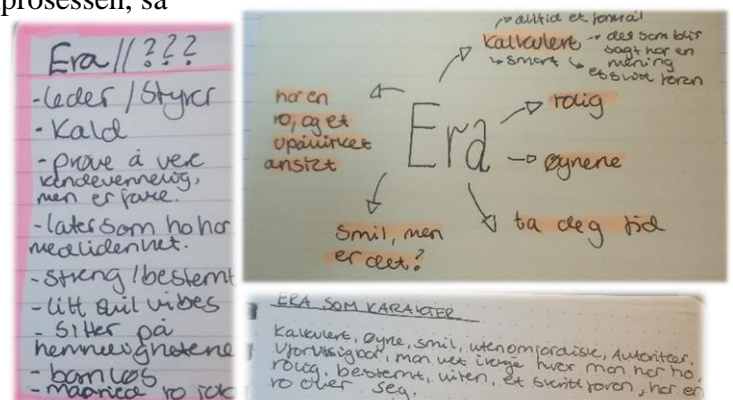 prosessen, så
Era // ???
-leder / styrer
- Kald
- prøve å vere
kindevennleg,
men er fare.
-later som ho har
medlidenhet.
- streng / bestemt
- litt evil vibes
- Sitter på
hemmelighetene
- barnløs
alltid et formål
Kalkulert
smart
det som blir
sagt har en
mening
et skritt foran
har en
ro, og et
upåvirket
ansikt
Era
rolig
øynene
ta deg tid
smil, men
er det?
ERA SOM KARAKTER
Kalkulert, øyne, smil, utenomjordisk, Autoritær,
Uforutsigbar, man vet ikke hvor man har ho,
rolig, bestemt, viten, et skritt foran, har en
ro over seg.